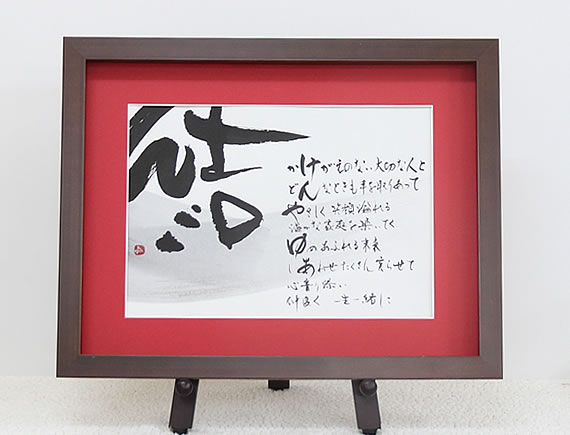 結
かけがえのない大切な人と
どんなときも手を取りあって
やさしく笑顔溢れる
温かな家庭を築いてく
ゆめあふれる未来
しあわせたくさん実らせて
心寄り添い
仲良く 一生一緒に